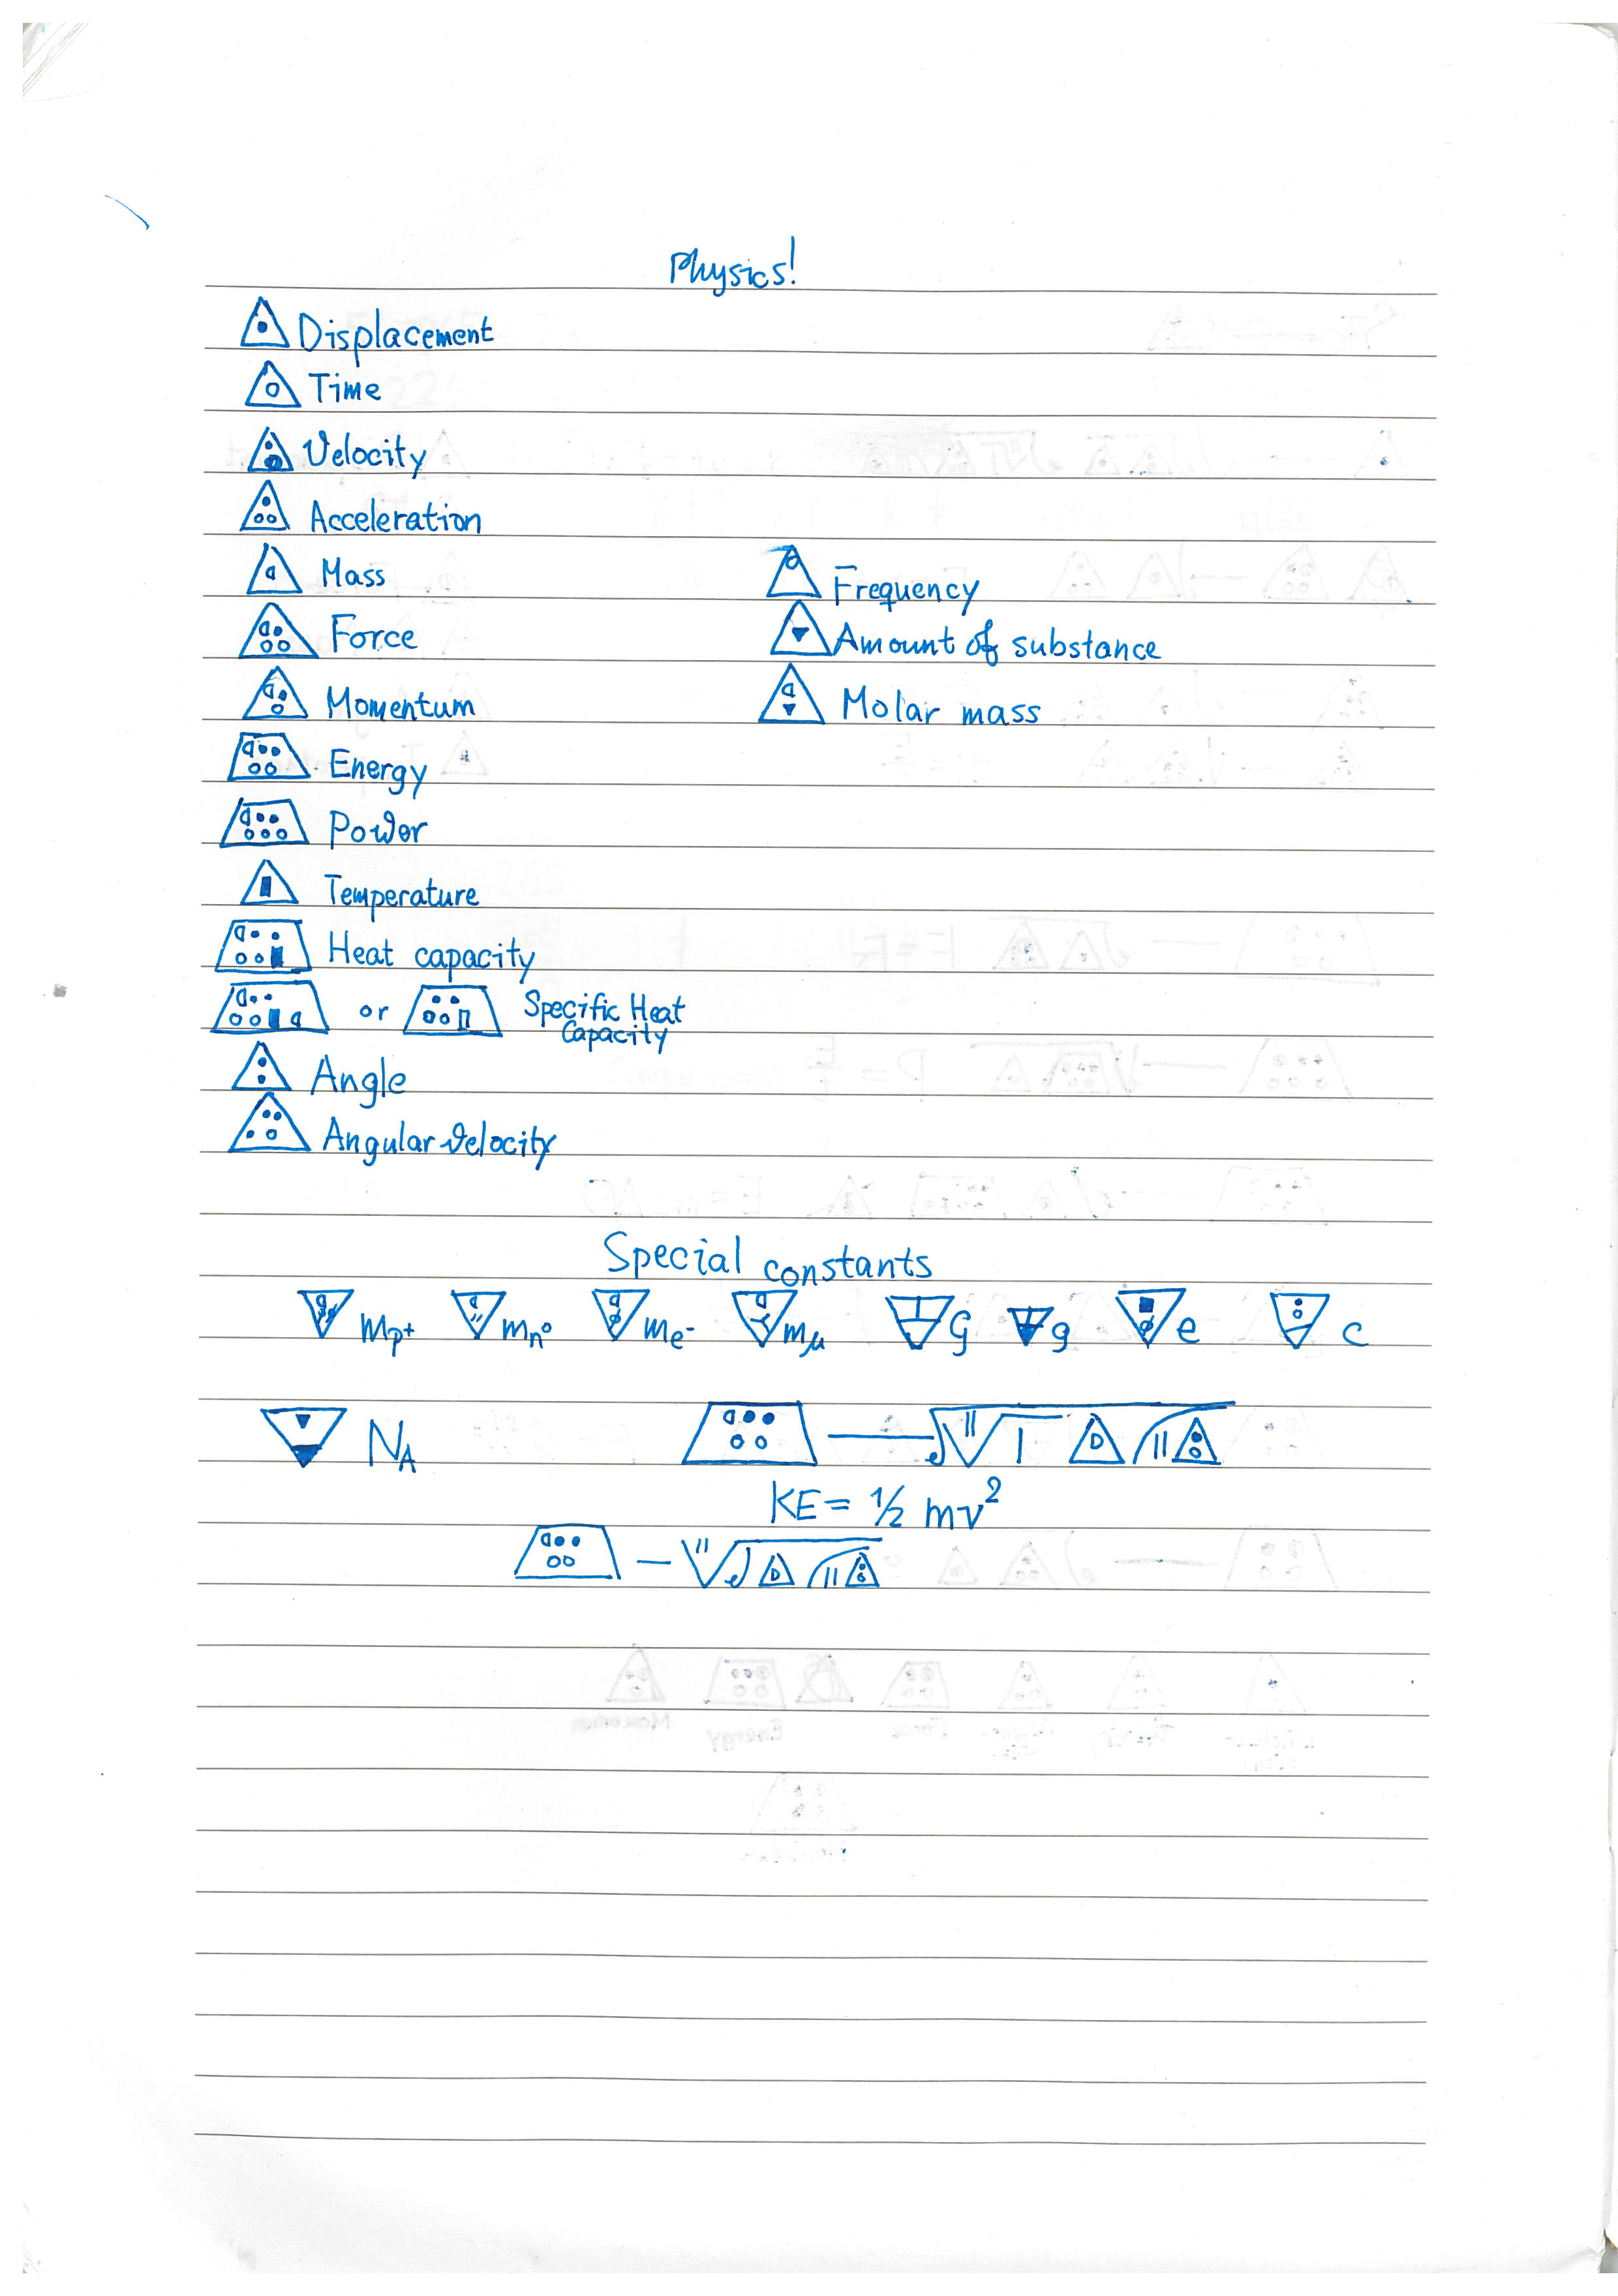 Physics!
Displacement
Time
Velocity
Acceleration
Mass
Force
Momentum
Energy
Power
Temperature
Heat capacity
or Specific Heat Capacity
Angle
Angular velocity
Frequency
Amount of substance
Molar mass
Special constants
mp+ mn0 me- mμ G g e c
NA
KE = 1/2 mv²